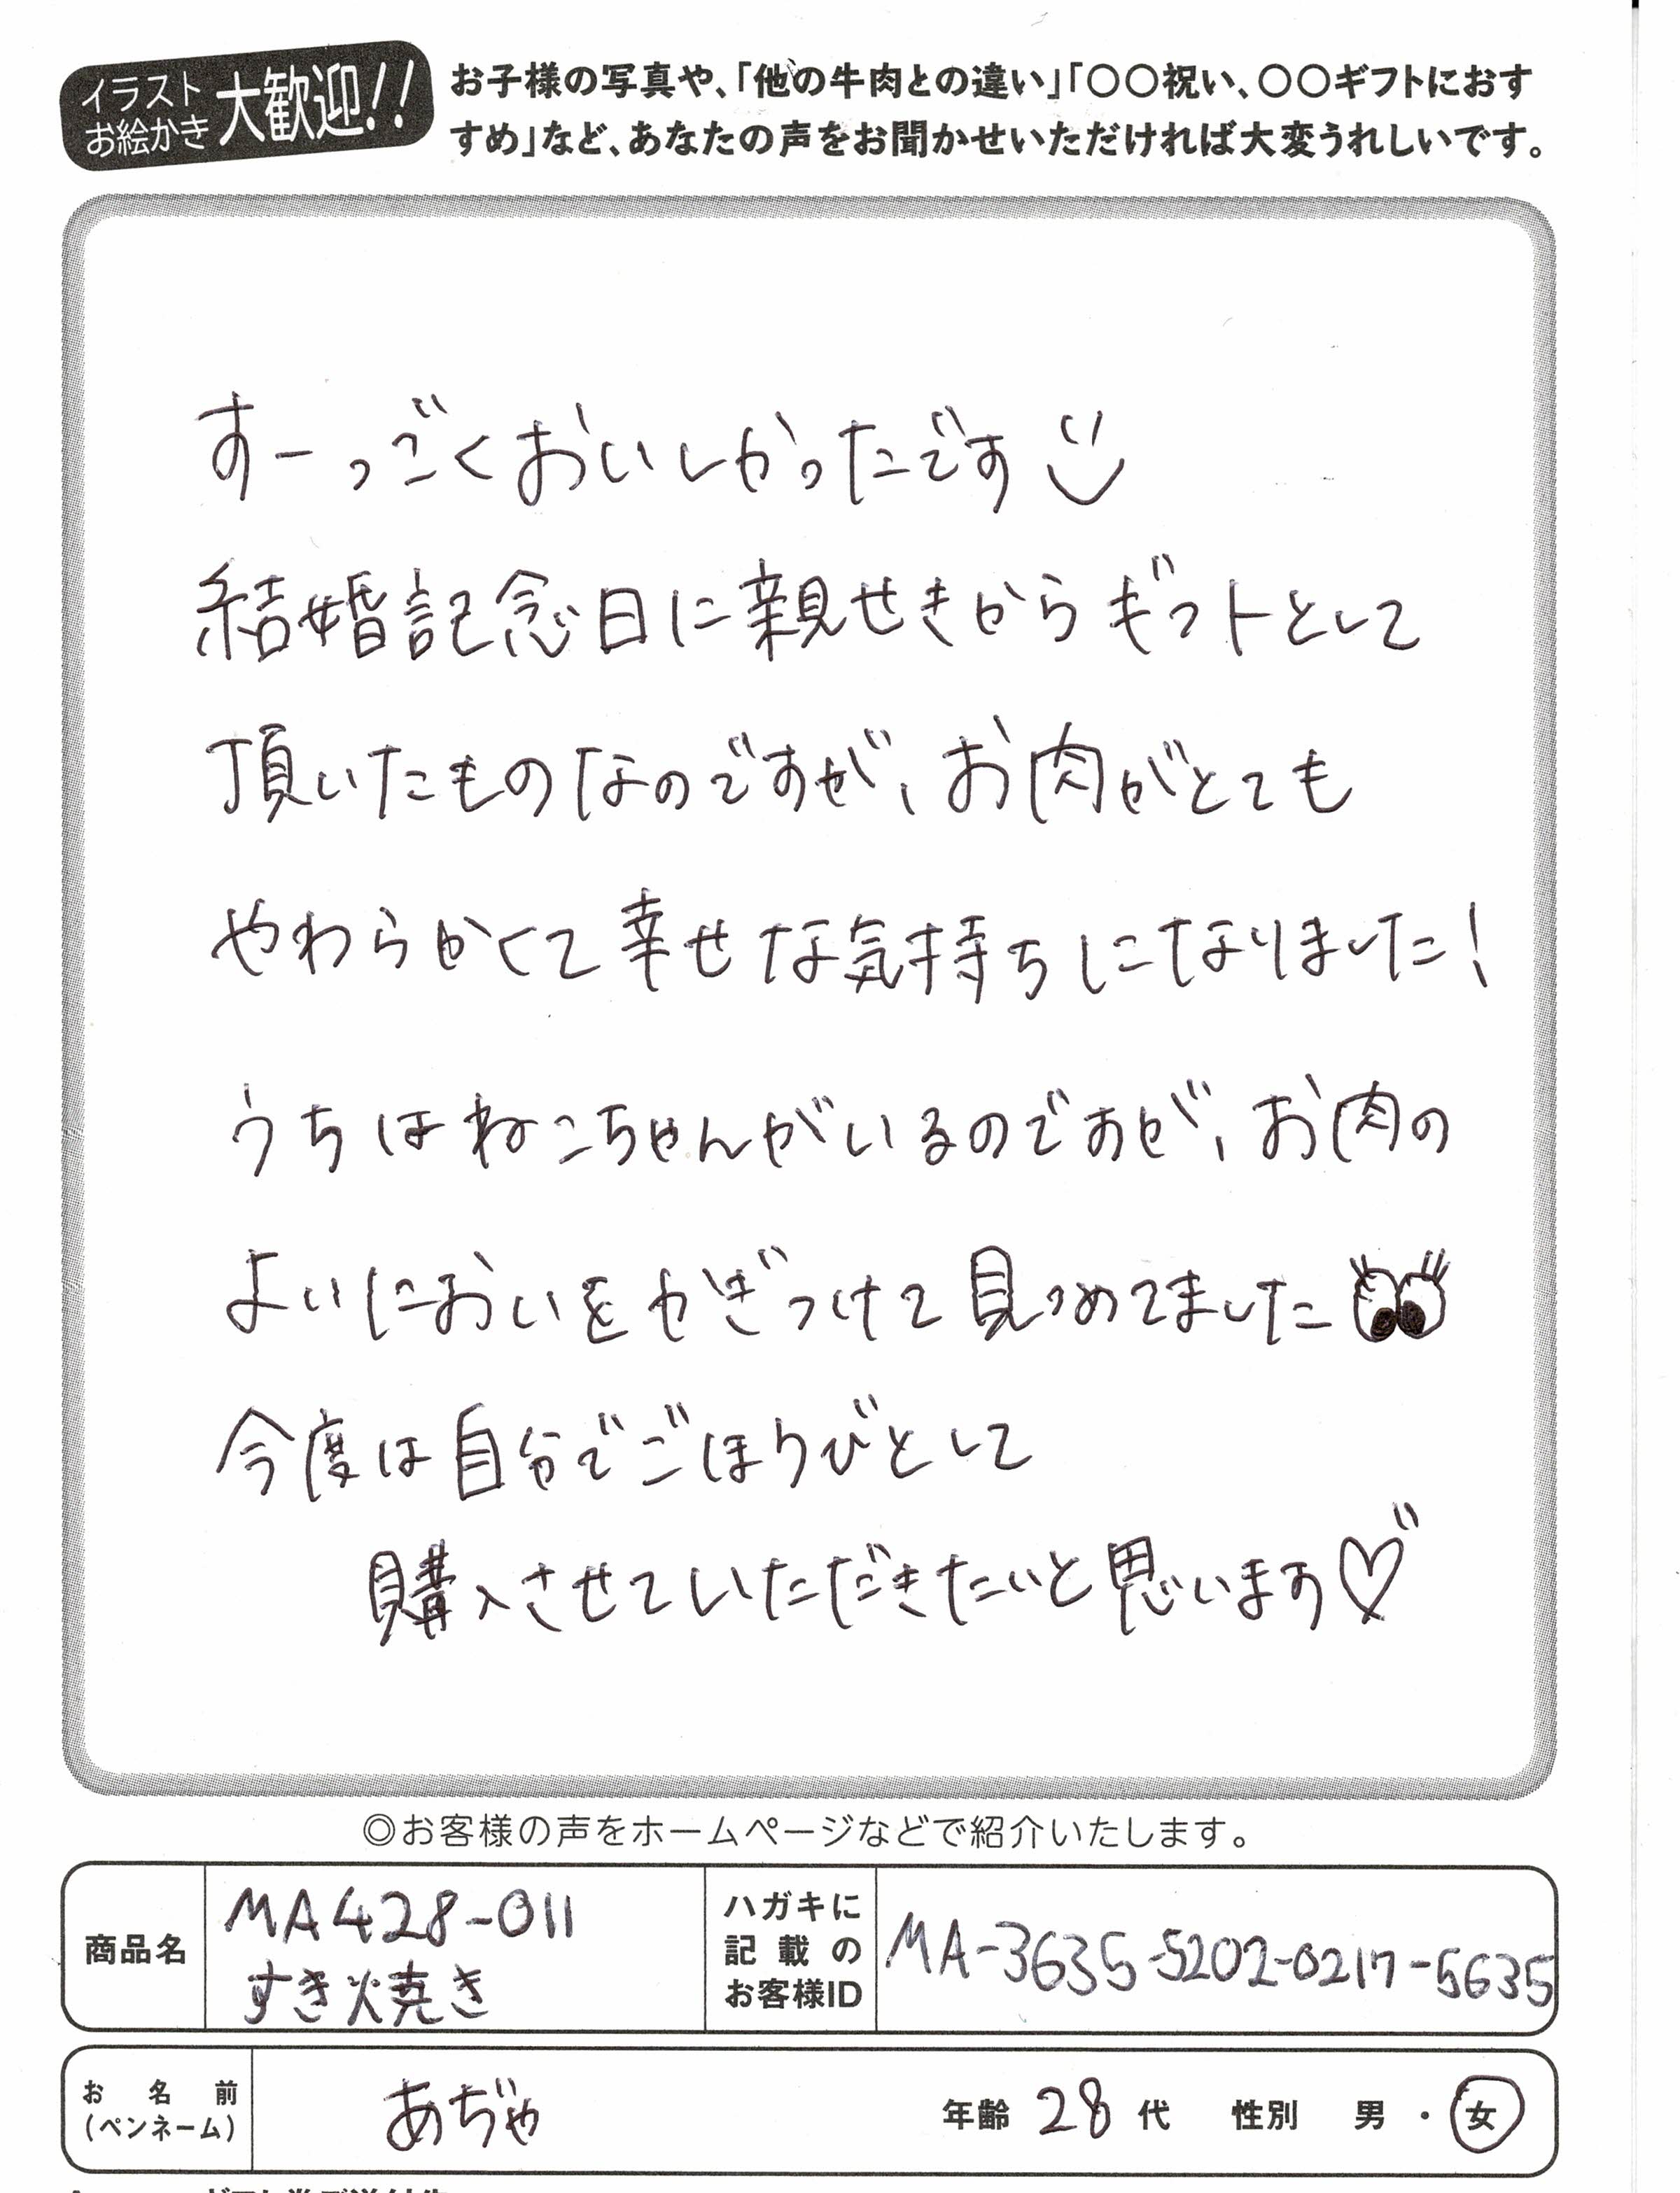 イラスト
お絵かき
大歓迎!!
お子様の写真や、「他の牛肉との違い」「〇〇祝い、〇〇ギフトにおす
すめ」など、あなたの声をお聞かせいただければ大変うれしいです。
すーっごくおいしかったです
結婚記念日に親せきからギフトとして
頂いたものなのですが、お肉がとても
やわらかくて幸せな気持ちになりました!
うちはねこちゃんがいるのですが、お肉の
よいにおいをかぎつけて見つめてました
今度は自分でごほうびとして
購入させていただきたいと思います♡
◎お客様の声をホームページなどで紹介いたします。
商品名
MA428-011
すき焼き
ハガキに
記載の
お客様ID
MA-3635-5202-0217-5635
お名前
(ペンネーム)
あぢゃ
年齢 28 代 性別 男・女